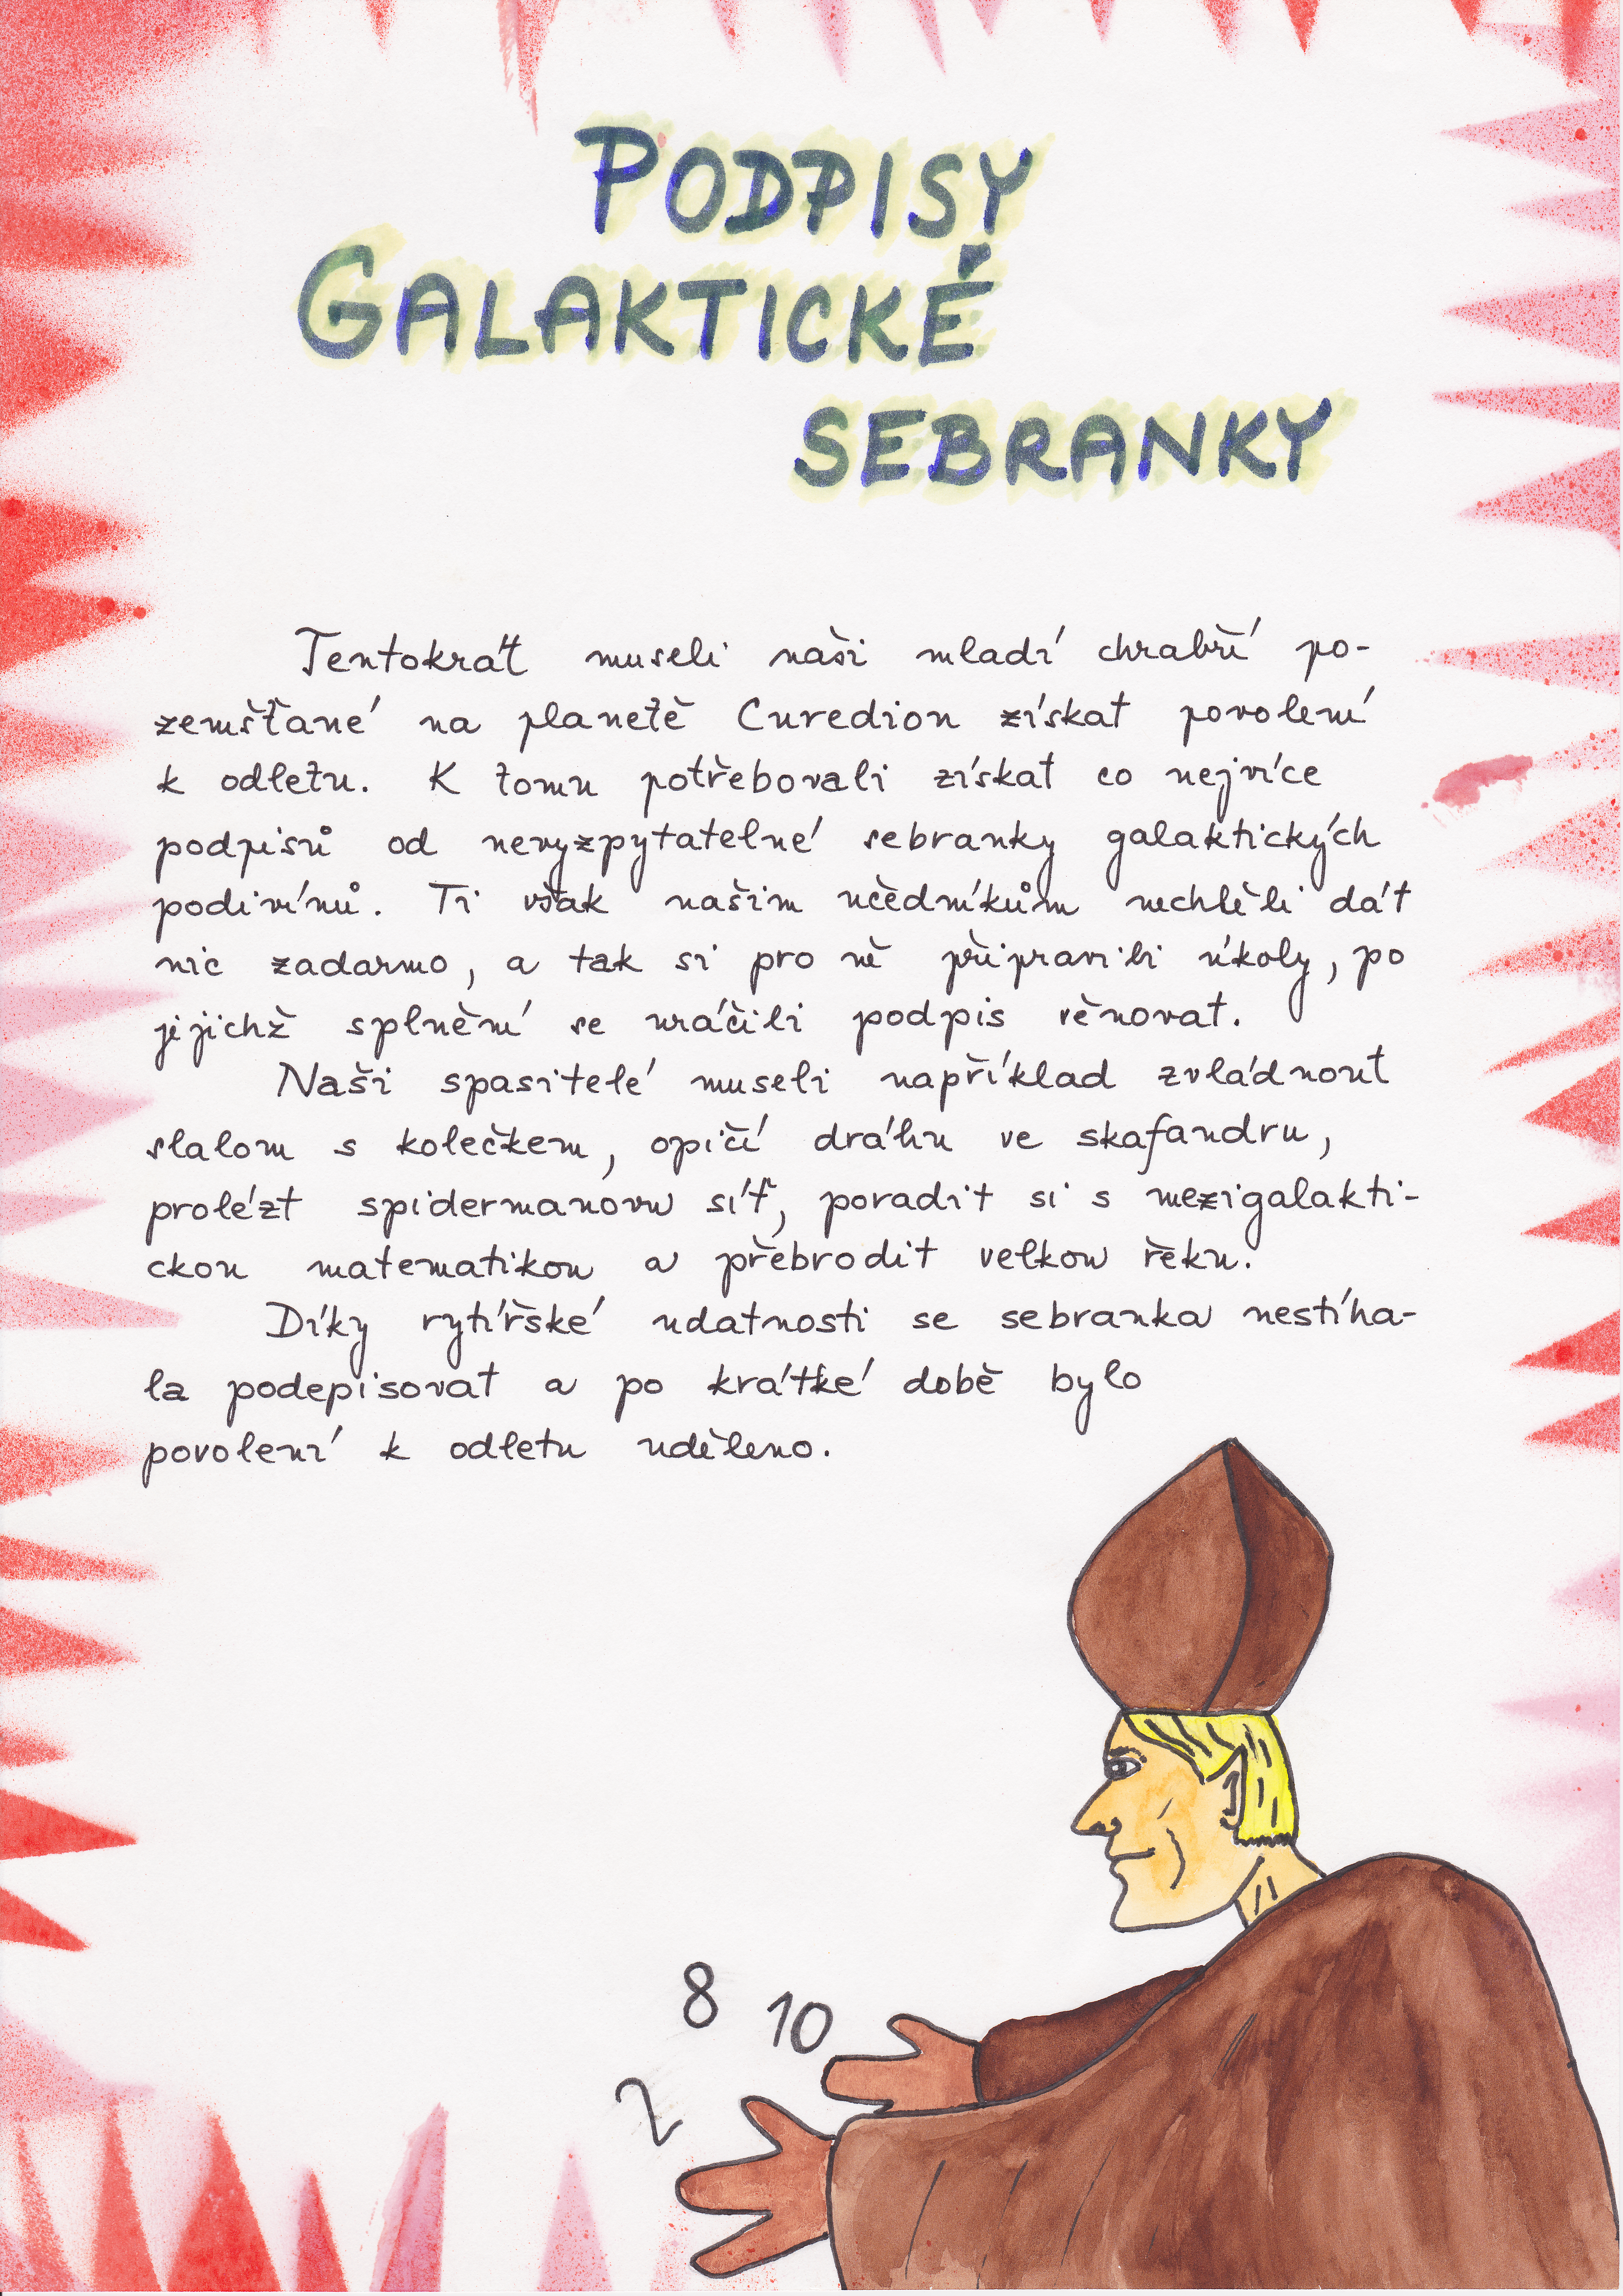 PODPISY
GALAKTICKÉ
SEBRANKY
Tentokrát museli naši mladí chrabří po-
zemšťané na planetě Curedion získat povolení
k odletu. K tomu potřebovali získat co nejvíce
podpisů od nevyzpytatelné sebranky galaktických
podivínů. Ti však našim učedníkům nechtěli dát
nic zadarmo, a tak si pro ně připravili úkoly, po
jejichž splnění se uráčili podpis věnovat.
Naši spasitelé museli například zvládnout
slalom s kolečkem, opičí dráhu ve skafandru,
prolézt spidermanovu síť, poradit si s mezigalakti-
ckou matematikou a přebrodit velkou řeku.
Díky rytířské udatnosti se sebranka nestíha-
la podepisovat a po krátké době bylo
povolení k odletu uděleno.
8 10
2